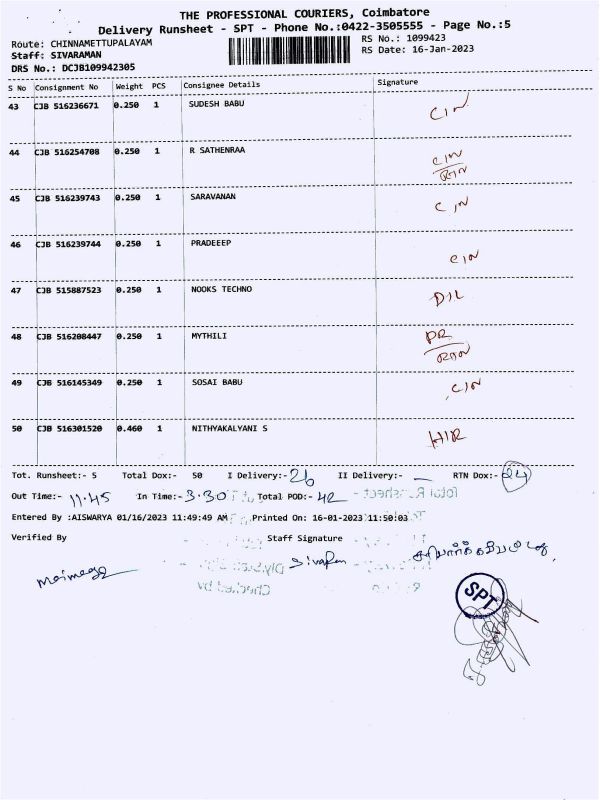 THE PROFESSIONAL COURIERS, Coimbatore
Delivery Runsheet - SPT - Phone No.:0422-3505555 - Page No.:5
Route: CHINNAMETTUPALAYAM RS No.: 1099423
Staff: SIVARAMAN RS Date: 16-Jan-2023
DRS No.: DCJB109942305
S No Consignment No Weight PCS Consignee Details Signature
43 CJB 516236671 0.250 1 SUDESH BABU CIN
44 CJB 516254708 0.250 1 R SATHENRAA CIN
RTN
45 CJB 516239743 0.250 1 SARAVANAN CIN
46 CJB 516239744 0.250 1 PRADEEEP CIN
47 CJB 515887523 0.250 1 NOOKS TECHNO D/L
48 CJB 516208447 0.250 1 MYTHILI PR
RTN
49 CJB 516145349 0.250 1 SOSAI BABU CIN
50 CJB 516301520 0.460 1 NITHYAKALYANI S
Tot. Runsheet:- 5 Total Dox:- 50 I Delivery:- 26 II Delivery:- — RTN Dox:- 24
Out Time:- 11.45 In Time:- 3.30 Total POD:- 42
Entered By :AISWARYA 01/16/2023 11:49:49 AM Printed On: 16-01-2023 11:50:03
Verified By Staff Signature
SPT